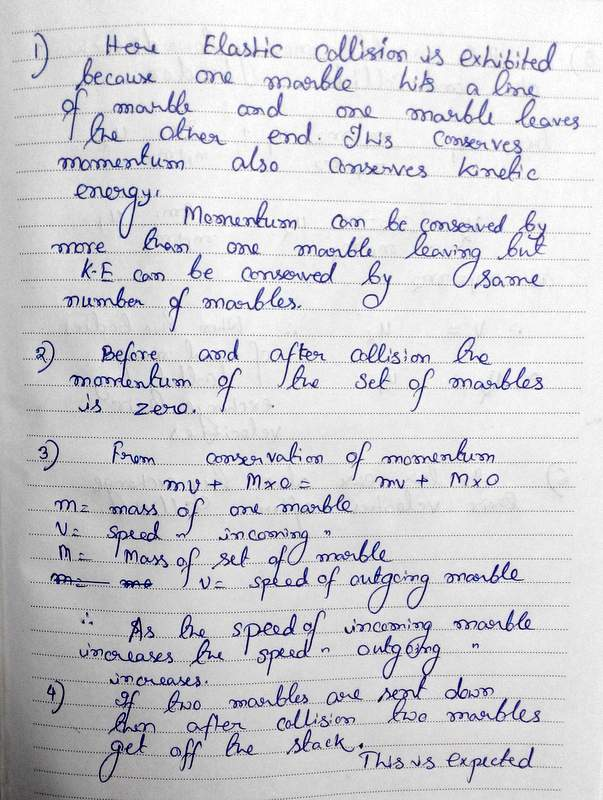 1) Here Elastic collision is exhibited
because one marble hits a line
of marble and one marble leaves
the other end. This conserves
momentum also conserves kinetic
energy.
Momentum can be conserved by
more than one marble leaving but
K.E can be conserved by same
number of marbles.
2) Before and after collision the
momentum of the set of marbles
is zero.
3) From conservation of momentum
mv + M×0 = mv + M×0
m = mass of one marble
v = speed " incoming "
M = Mass of set of marble
v = speed of outgoing marble
∴ As the speed of incoming marble
increases the speed " outgoing "
increases.
4) If two marbles are sent down
then after collision two marbles
get off the stack.
This is expected